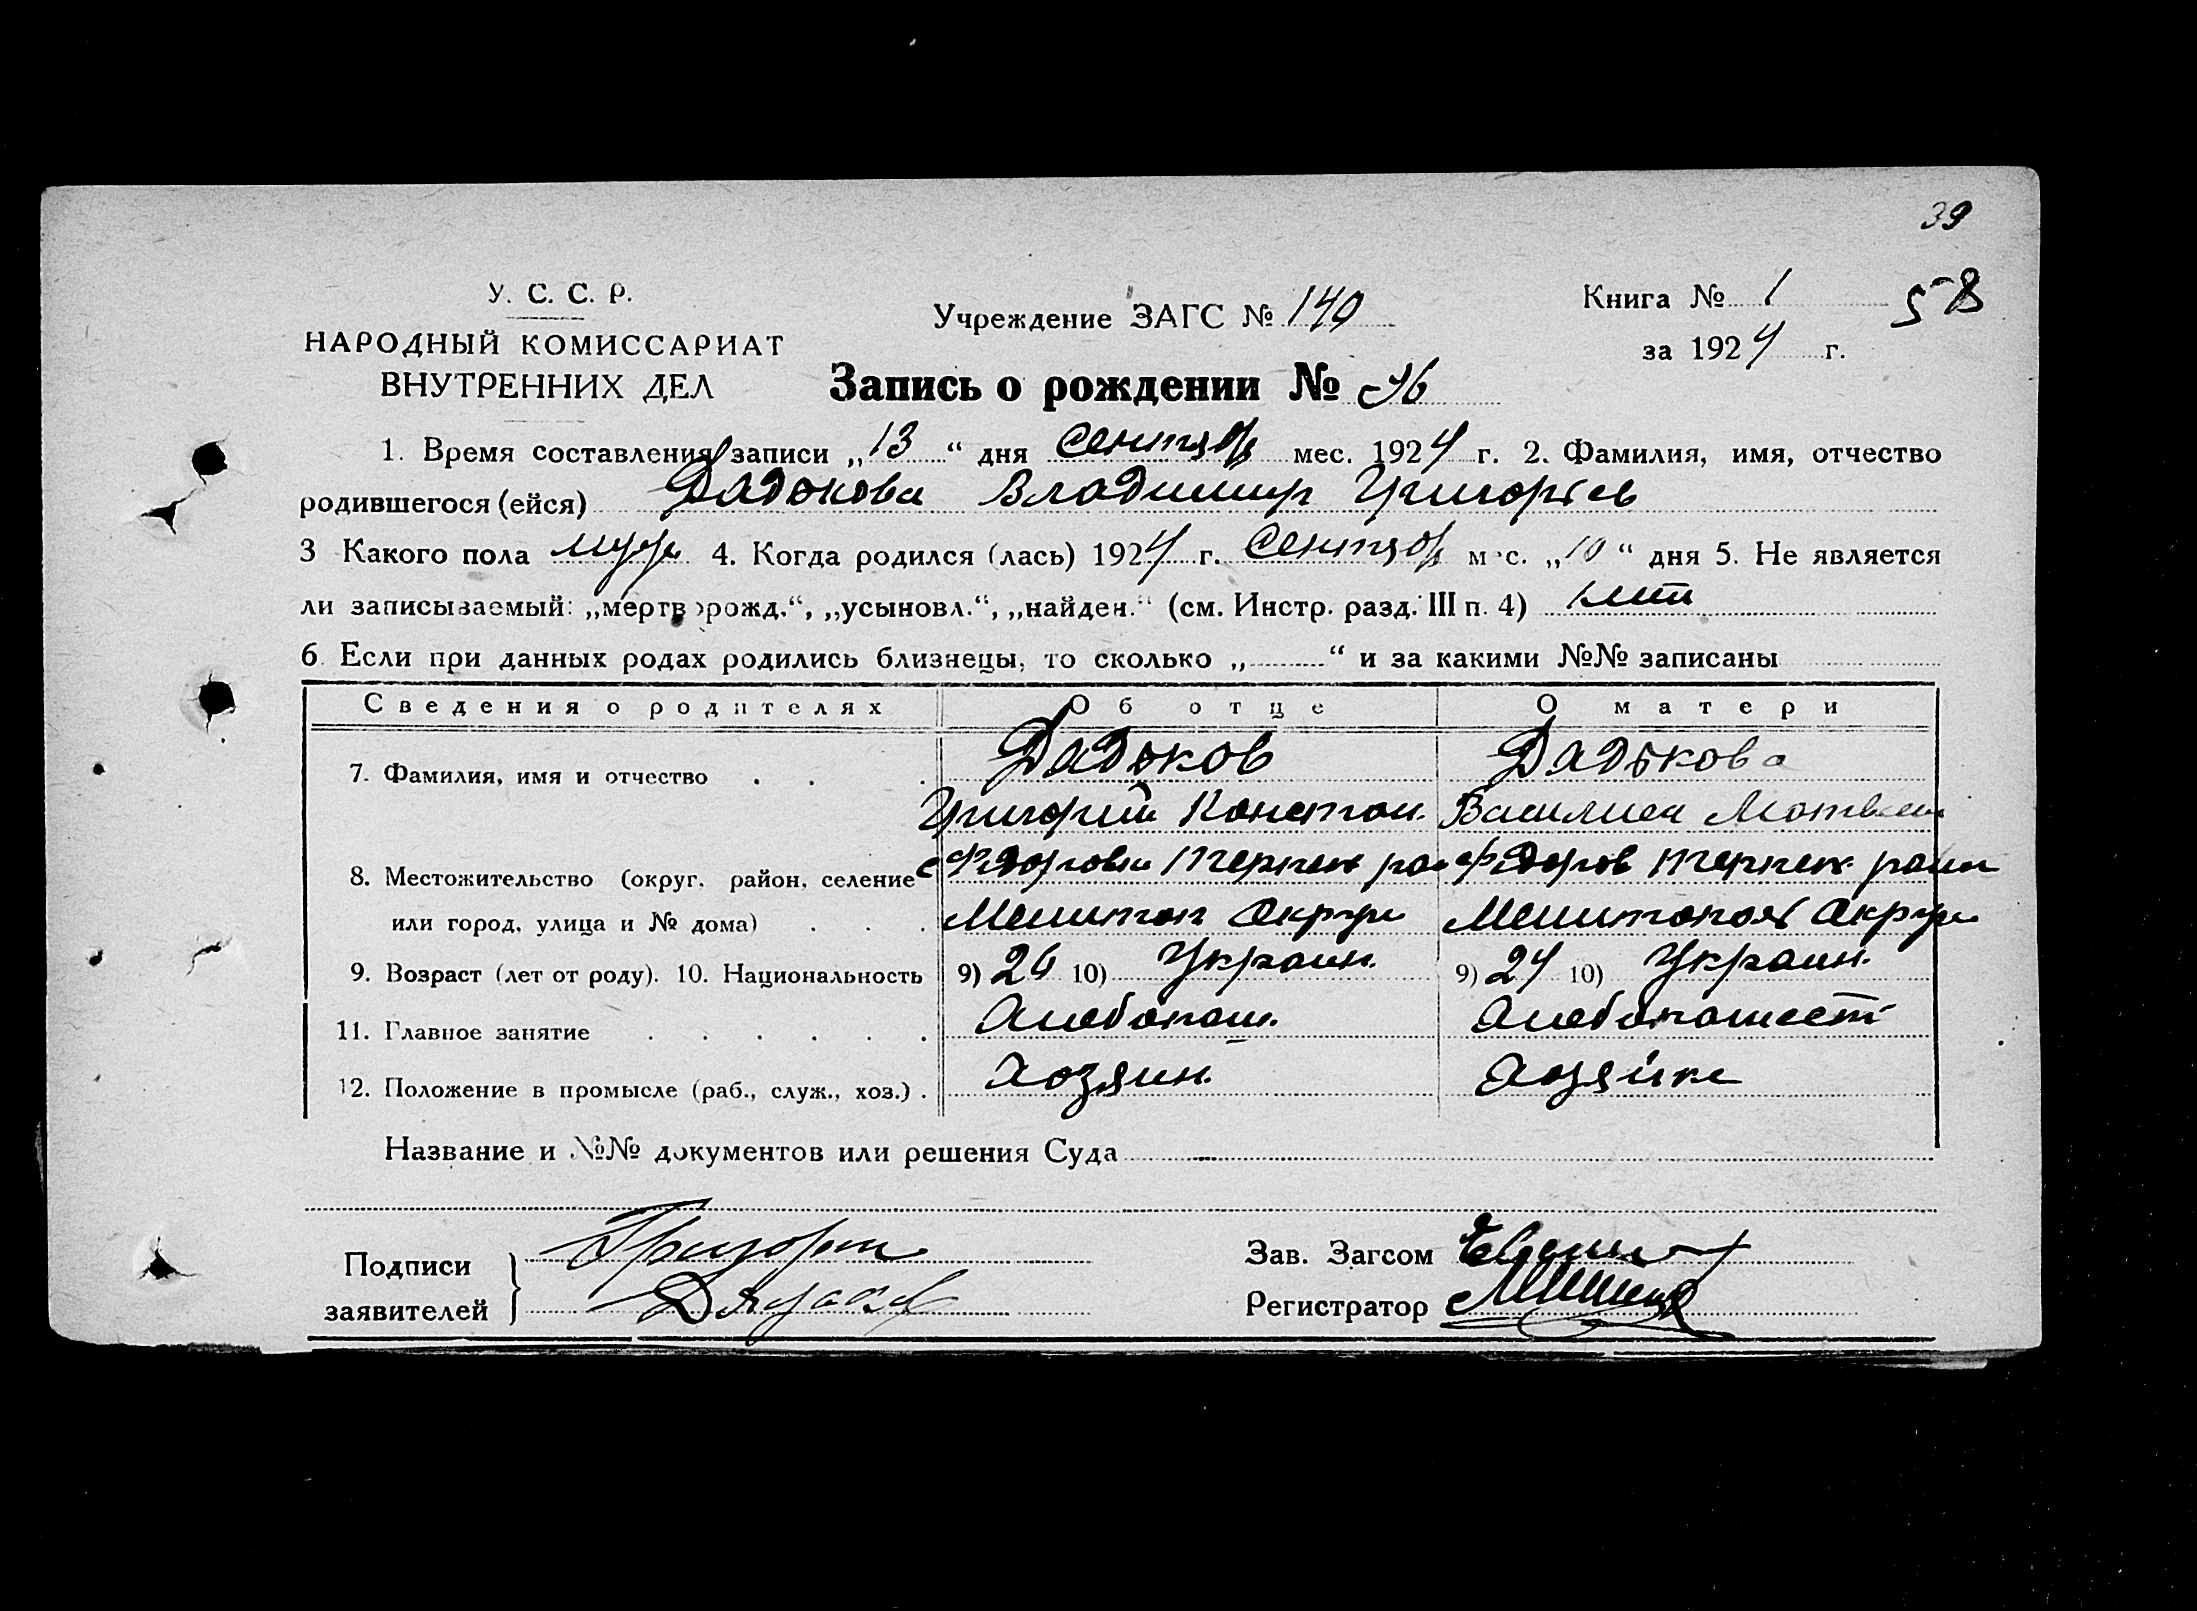 39
У. С. С. Р.
НАРОДНЫЙ КОМИССАРИАТ
ВНУТРЕННИХ ДЕЛ
Учреждение ЗАГС № 140
Книга № 1 58
за 1924 г.
Запись о рождении №
1. Время составления записи „13“ дня сентяб мес. 1924 г. 2. Фамилия, имя, отчество
родившегося (ейся) Владимир Григорьев
3 Какого пола муж 4. Когда родился (лась) 1924 г. сентяб мес. „10“ дня 5. Не является
ли записываемый: „мертворожд.“, „усыновл.“, „найден.“ (см. Инстр. разд. III п. 4) нет
6. Если при данных родах родились близнецы, то сколько „ “ и за какими №№ записаны
Сведения о родителях Об отце О матери
7. Фамилия, имя и отчество . . . Дадьков Дадькова
Григорий Констан. Василиса Матвеев
8. Местожительство (округ, район, селение с Федоровка район
или город, улица и № дома) . . . Мелитоп округа Мелитопол округа
9. Возраст (лет от роду). 10. Национальность 9) 26 10) Украин. 9) 24 10) Украин.
11. Главное занятие . . . . . . Хлебопаш. Хлебопашест
12. Положение в промысле (раб., служ., хоз.) . хозяин. хозяйка
Название и №№ документов или решения Суда
Подписи
заявителей
Григорий
Зав. Загсом
Регистратор